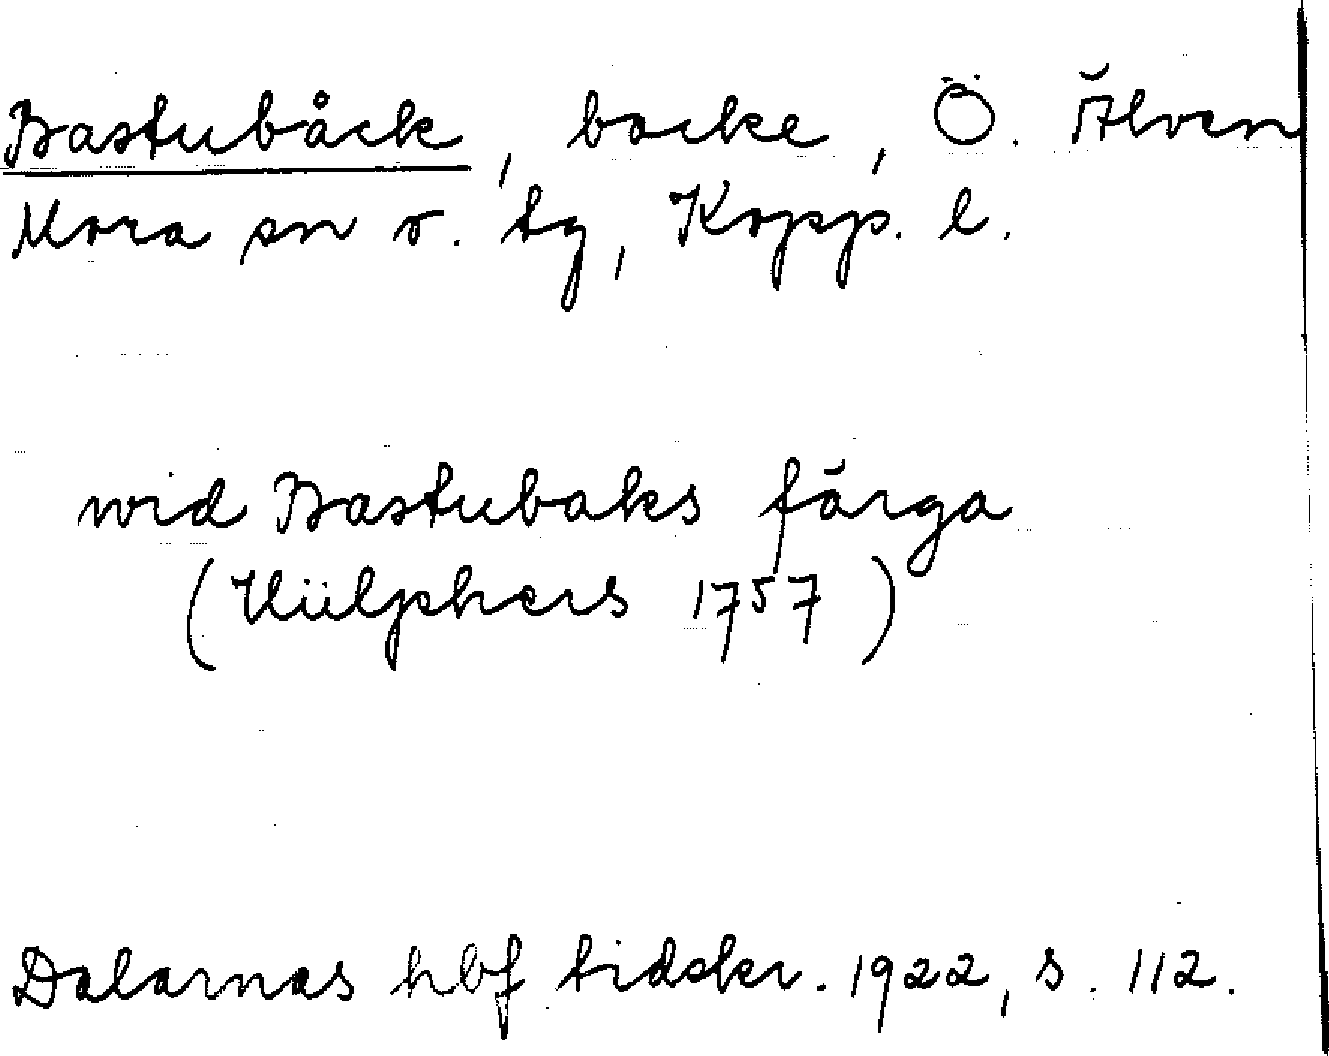 Bastubåck, backe, Ö. Älven
Mora sn o. tg, Kopp. l.
wid Bastubaks färga
(Hülphers 1757)
Dalarnas hbf tidskr. 1922, s. 112.